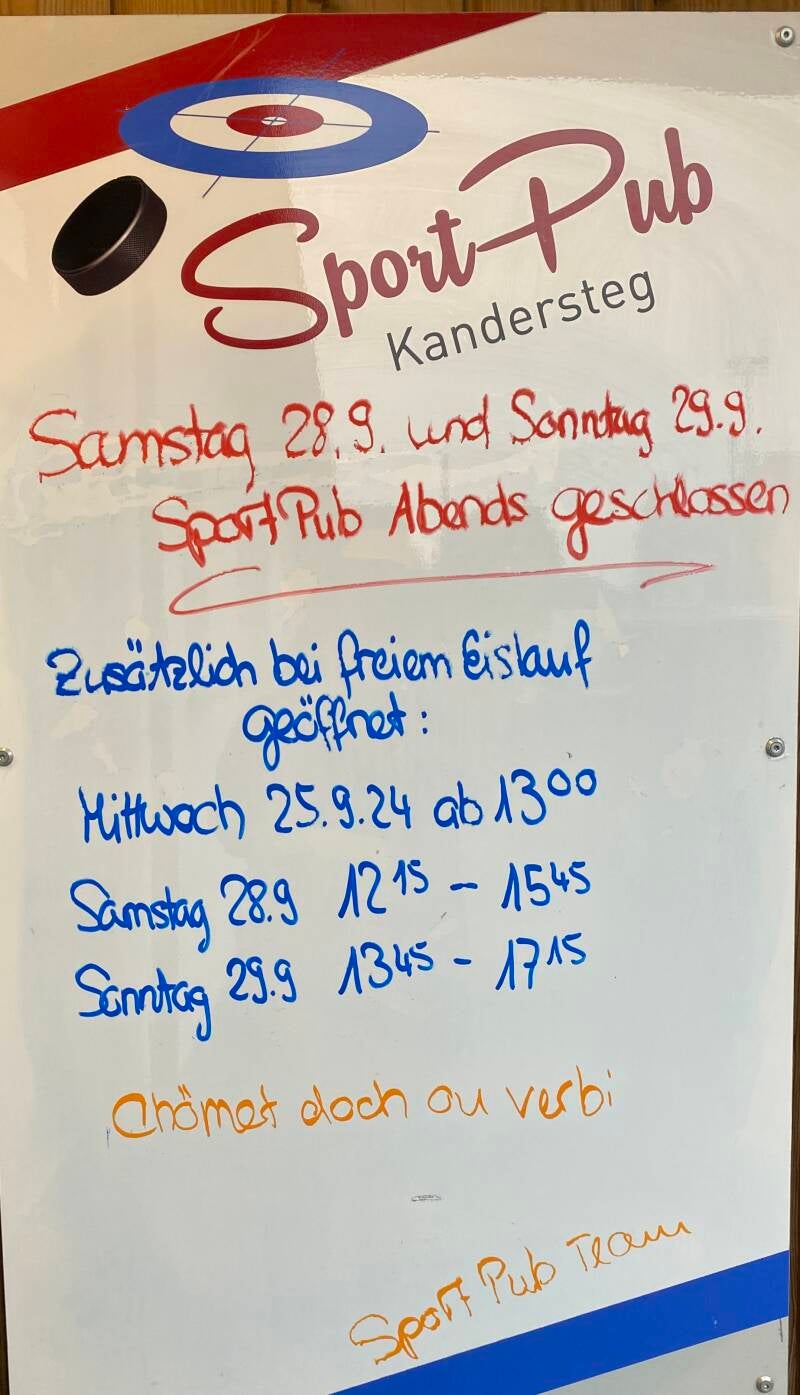 Sport Pub
Kandersteg
Samstag 28.9. und Sonntag 29.9.
Sport Pub Abends geschlossen
Zusätzlich bei freiem Eislauf
geöffnet:
Mittwoch 25.9.24 ab 13⁰⁰
Samstag 28.9 12¹⁵ - 15⁴⁵
Sonntag 29.9 13⁴⁵ - 17¹⁵
Chömet doch ou verbi
Sport Pub Team